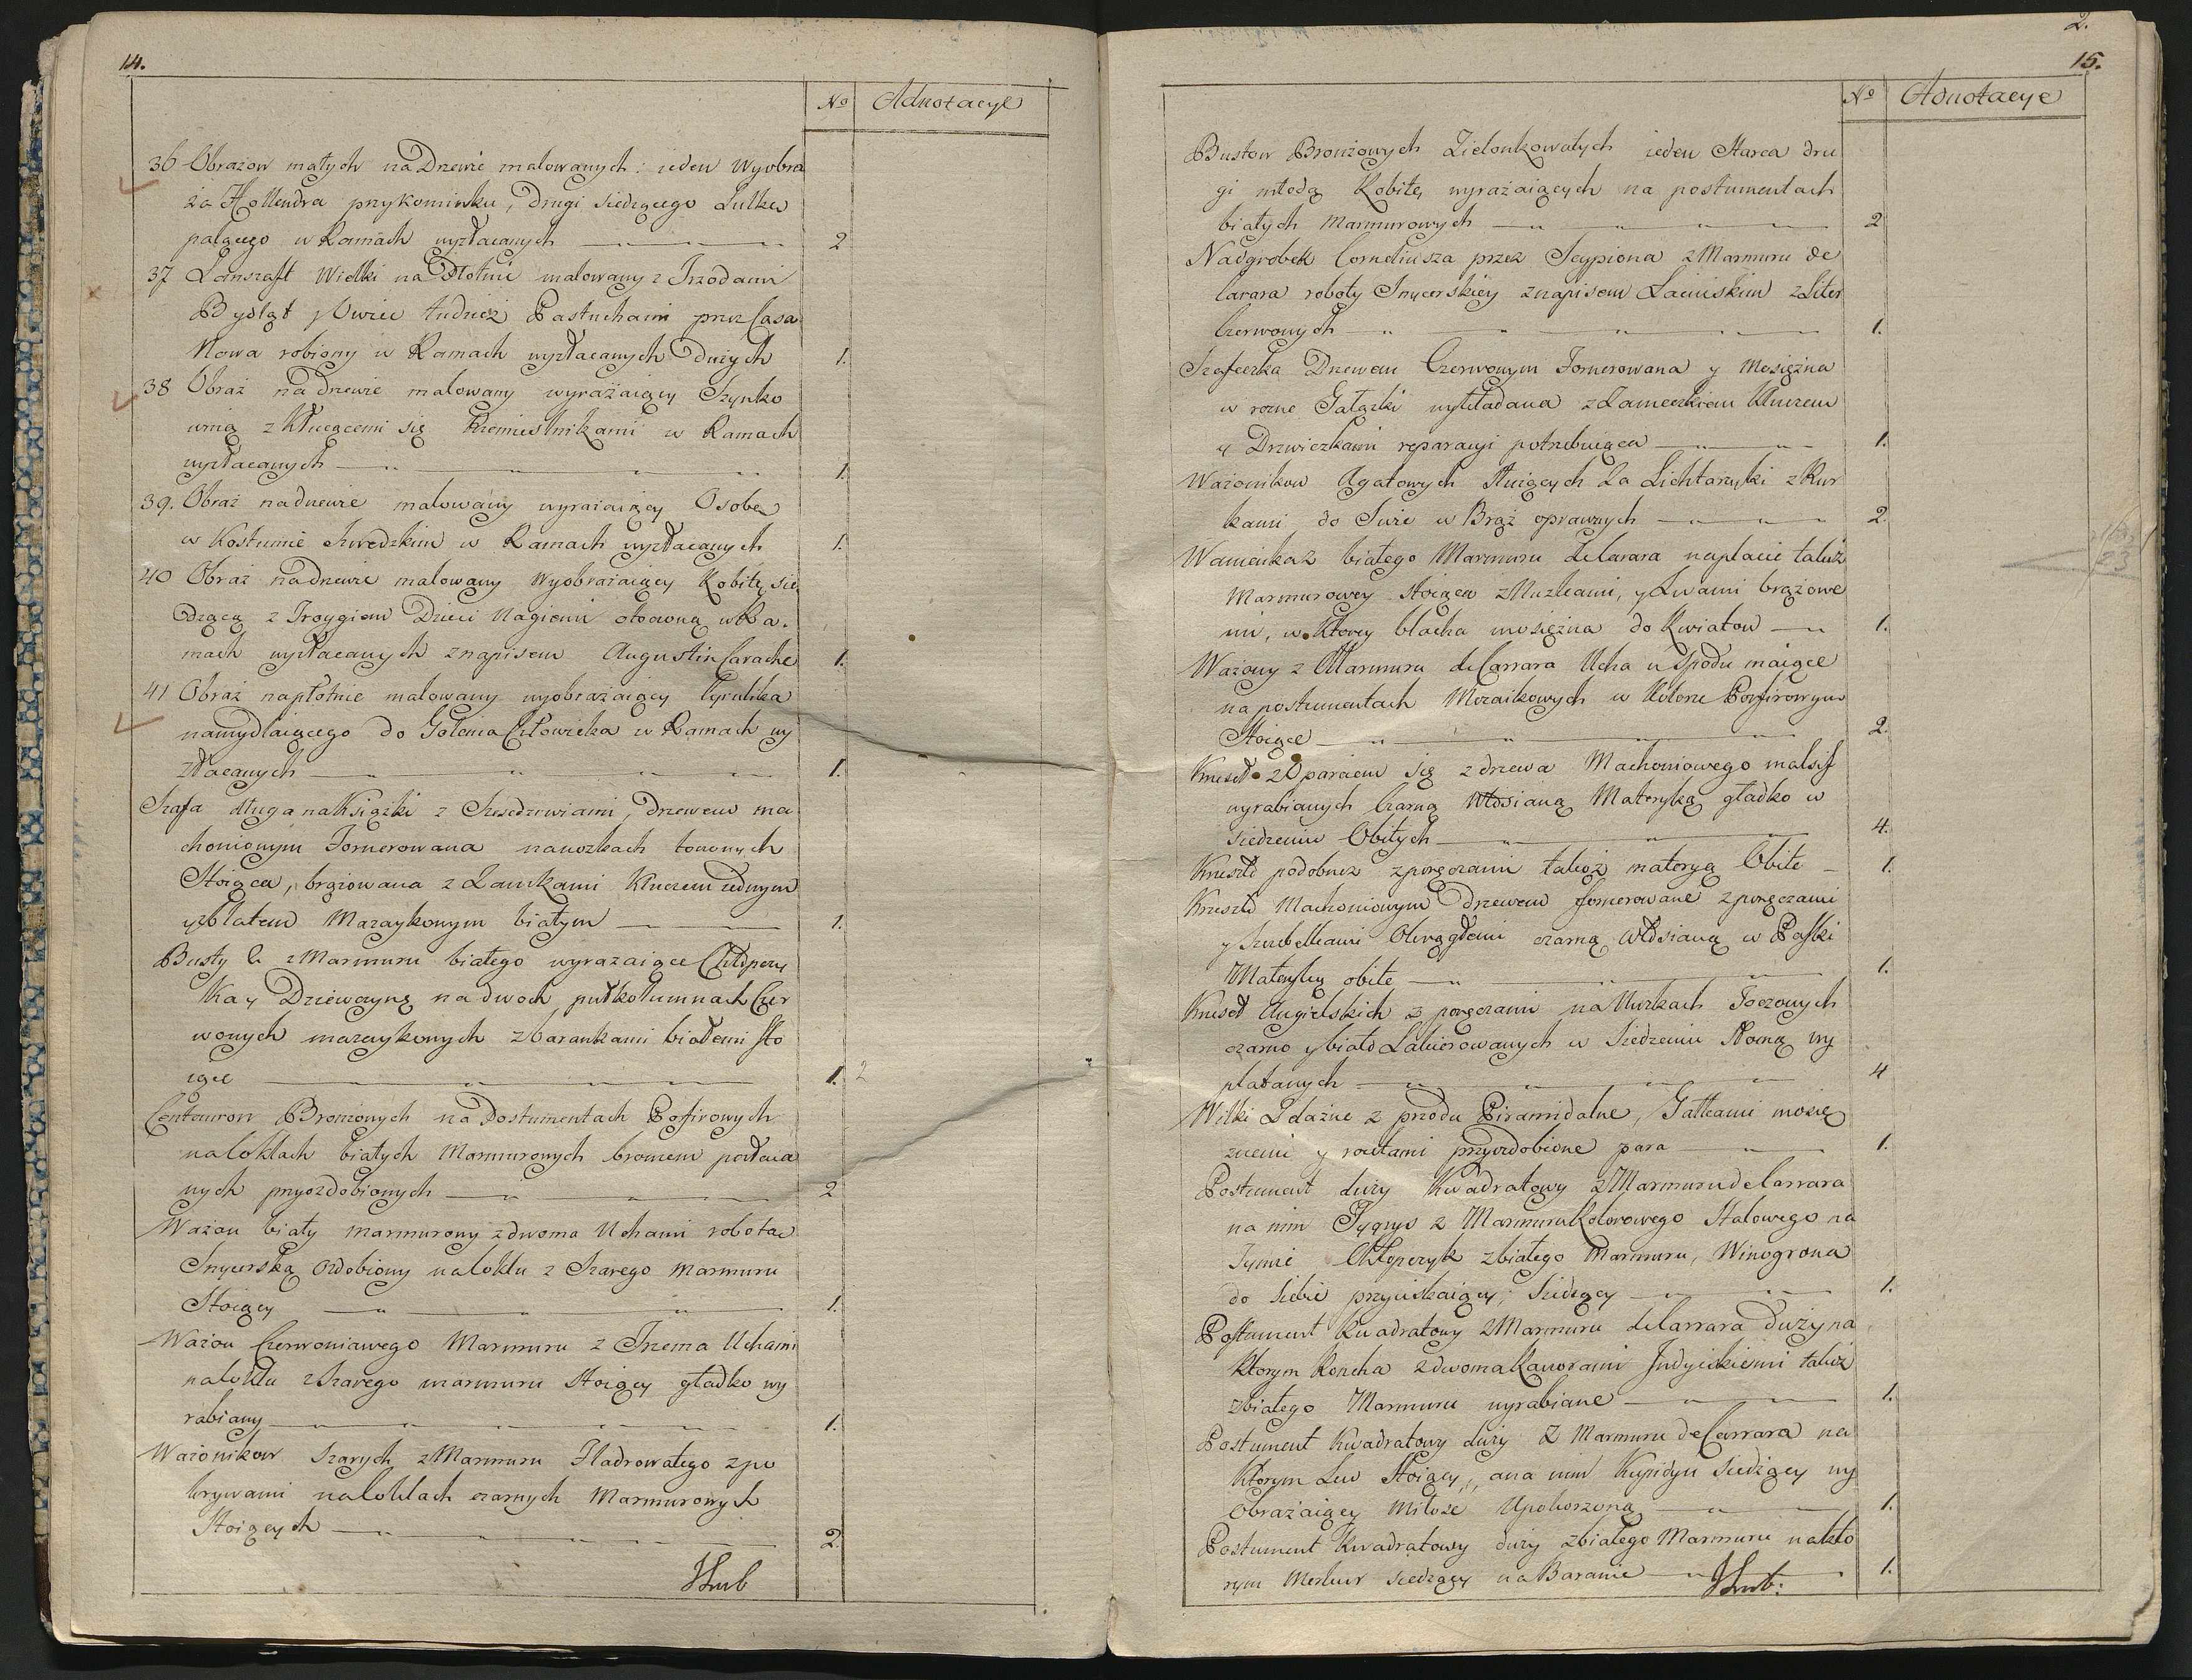 14.
No Adnotacye
36 Obrazow małych na Drzewie malowanych: ieden Wyobra
ża Hollendra przykominku, Drugi siedzącego Lulkę
palącego w Ramach wyzłacanych 2
37 Lanszaft Wielki na Płotnie malowany z Trzodami
Bydląt y Owiec tudzież Pastuchami przez Casa
Nowa robiony w Ramach wyzłacanych Dużych 1.
38 Obraz na drzewie malowany wyrażaiący Szynko
wnią z Kłucącemi się Rzemieslnikami w Ramach
wyzłacanych 1.
39. Obraz nadrzewie malowany wyrażaiący Osobę
w Kostumie Szwedzkim w Ramach wyzłacanych 1.
40 Obraz nadrzewie malowany Wyobrażaiący Kobitę sie
dzącą z Troygiem Dzieci Nagiemi otoczoną w Ra.
mach wyzłacanych znapisem Augustin Carache 1.
41 Obraz napłotnie malowany wyobrażaiący Cyrulika
namydlaiącego do Golenia Człowieka w Ramach wy
złacanych 1.
Szafa długa naKsiążki z Sześcdrzwiami, Drzewem ma
choniowym Fornerowana nanozkach toczonych
Stoiąca, brązowana z Zamkami Kluczem iednym
yzblatem Mazaykowym białym 1.
Busty 2 z Marmuru białego wyrażaiące Chłopczy
ka y Dziewczynę na dwoch pułkolumnach Czer
wonych mazaykowych zbarankami białemi sto
iące 1. 2
Centaurow Bronzowych na Postumentach Pofirowych
nacoklach białych Marmurowych bronzem pozłaca
nych przyozdobionych 2
Wazon biały marmurowy zdwoma Uchami robotą
Snycerską ozdobiony nacoklu z Szarego Marmuru
Stoiący 1.
Wazon Czerwoniawego Marmuru z Trzema Uchami
nacoklu zSzarego marmuru Stoiący gładko wy
rabiany 1.
Wazonikow Szarych z Marmuru Fladrowatego zpo
krywami nacoklach czarnych Marmurowych
Stoiących 2.
2.
15.
No Adnotacye
Bustow Bronzowych Zielonkowatych ieden Starca dru
gi młodą Kobitę wyrażaiących na postumentach
białych Marmurowych 2
Nadgrobek Corneliusza przez Scypiona z Marmuru de
Carara roboty Snycerskiey znapisem Łacinskim zLiter
Czerwonych 1.
Szafeczka Drzewem Czerwonym Fornerowana y Mosiężna
w rozne Gałązki wykładana zZameczkiem Kluczem
y Drzwiczkami reparacyi potrzebuiąca 1.
Wazonikow Agatowych słuiących Za Lichtarzyki zRur
kami do Swic w Brąz oprawnych 2
Wanienka z białego Marmuru de Carara naplacie takiż
Marmurowey Stoiąca z Nuzkami, y Lwami brązowe
mi, w Ktorey blacha mosiężna do Kwiatow 1.
Wazony z Marmuru de Carrara Ucha u Spodu maiące
na postumentach Mozaikowych w Kolorze Porfirowym
Stoiące 2.
Krzeseł z Oparciem się z drzewa Machoniowego malsif
wyrabianych Czarną Włosianą Materyką gładko w
siedzeniu Obitych 4.
Krzesło podobnez zporęczami takoż materyą Obite 1.
Krzesło Machoniowym drzewem fornerowane z poręczami
y Szczebelkami Okrągłemi czarną Włosianą w Paski
Materyką obite 1.
Krzeseł Angielskich z poręczami na Nuzkach Toczonych
czarno y biało Lakierowanych w Siedzeniu Słomą wy
platanych 4
Wilki Żelazne z przodu Piramidalne, Gałkami mosię
znemi y rozetami przyozdobione para 1.
Postument duży Kwadratowy z Marmuru de Carrara
na nim Tygrys z Marmuru Kolorowego Stalowego na
Tymże Chłopczyk zbiałego Marmuru, Winogrona
do siebie przyciskaiący, Siedzący 1.
Postument Kwadratowy z Marmuru de Carrara Duży na
Ktorym Koncha zdwoma Kaczorami Indyiskiemi takoż
zbiałego Marmuru wyrabiane 1.
Postument Kwadratowy duży z Marmuru de Carrara na
Ktorym Lew Stoiący, ana nim Kupidyn siedzący wy
obrażaiący Miłosc Upokorzoną 1.
Postument Kwadratowy duży zbiałego Marmuru nakto
rym Merkur siedzący na Baranie 1.